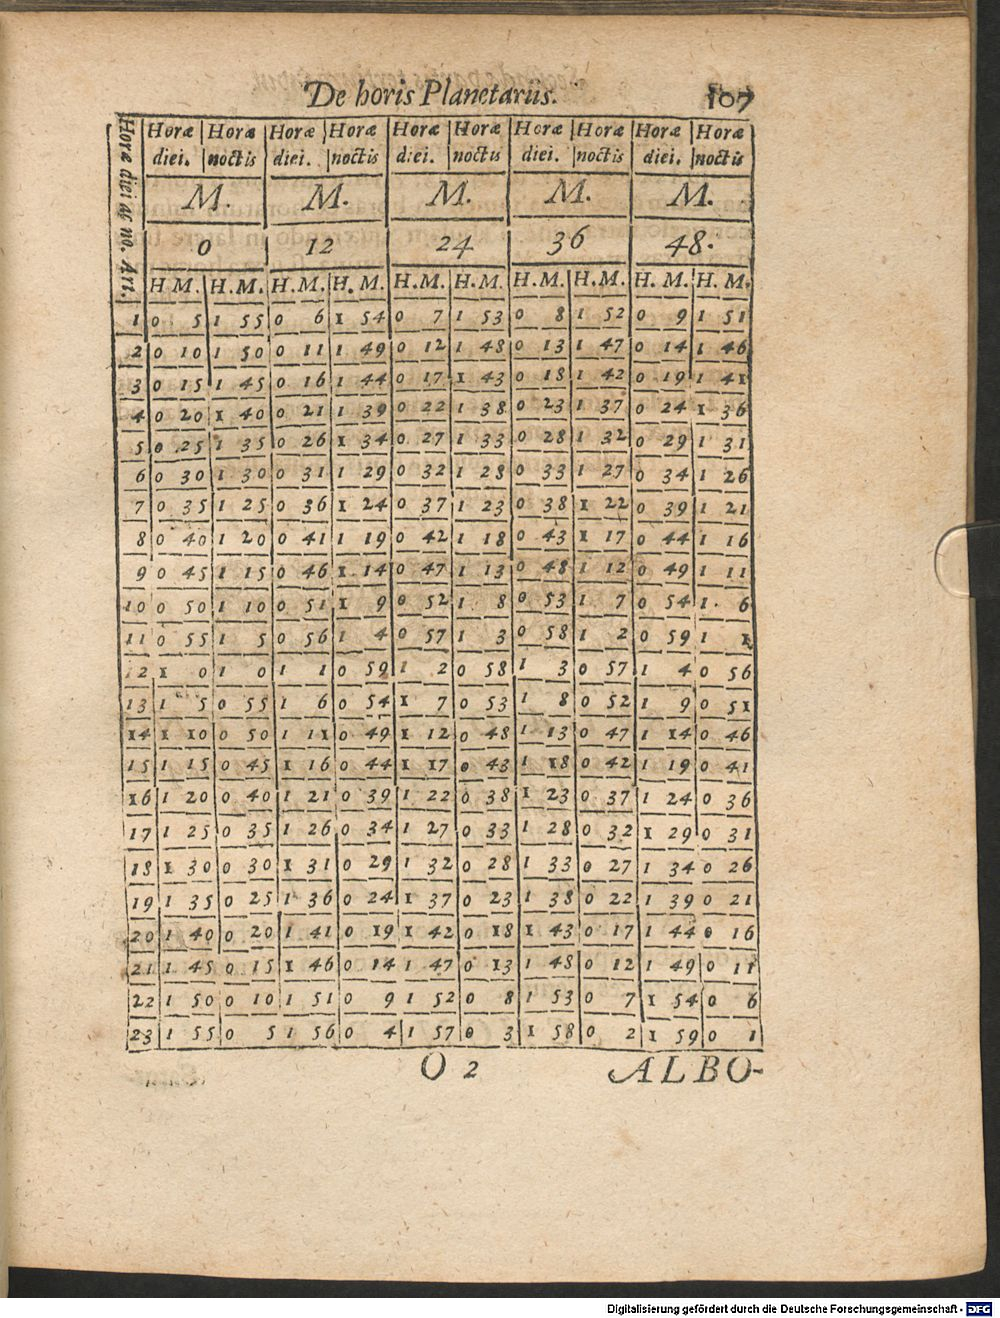 De horis Planetariis. 107
Horæ diei ac no. Art.
Horæ Horæ Horæ Horæ Horæ Horæ Horæ Horæ Horæ Horæ
diei. noctis diei. noctis diei. noctis diei. noctis diei. noctis
M. M. M. M. M.
0 12 24 36 48.
H M. H. M. H. M. H. M. H. M. H. M. H. M. H. M. H. M. H. M.
1 0 5 1 55 0 6 1 54 0 7 1 53 0 8 1 52 0 9 1 51
2 0 10 1 50 0 11 1 49 0 12 1 48 0 13 1 47 0 14 1 46
3 0 15 1 45 0 16 1 44 0 17 1 43 0 18 1 42 0 19 1 41
4 0 20 1 40 0 21 1 39 0 22 1 38 0 23 1 37 0 24 1 36
5 0 25 1 35 0 26 1 34 0 27 1 33 0 28 1 32 0 29 1 31
6 0 30 1 30 0 31 1 29 0 32 1 28 0 33 1 27 0 34 1 26
7 0 35 1 25 0 36 1 24 0 37 1 23 0 38 1 22 0 39 1 21
8 0 40 1 20 0 41 1 19 0 42 1 18 0 43 1 17 0 44 1 16
9 0 45 1 15 0 46 1 14 0 47 1 13 0 48 1 12 0 49 1 11
10 0 50 1 10 0 51 1 9 0 52 1 8 0 53 1 7 0 54 1. 6
11 0 55 1 5 0 56 1 4 0 57 1 3 0 58 1 2 0 59 1 1
12 1 0 1 0 1 1 0 59 1 2 0 58 1 3 0 57 1 4 0 56
13 1 5 0 55 1 6 0 54 1 7 0 53 1 8 0 52 1 9 0 51
14 1 10 0 50 1 11 0 49 1 12 0 48 1 13 0 47 1 14 0 46
15 1 15 0 45 1 16 0 44 1 17 0 43 1 18 0 42 1 19 0 41
16 1 20 0 40 1 21 0 39 1 22 0 38 1 23 0 37 1 24 0 36
17 1 25 0 35 1 26 0 34 1 27 0 33 1 28 0 32 1 29 0 31
18 1 30 0 30 1 31 0 29 1 32 0 28 1 33 0 27 1 34 0 26
19 1 35 0 25 1 36 0 24 1 37 0 23 1 38 0 22 1 39 0 21
20 1 40 0 20 1 41 0 19 1 42 0 18 1 43 0 17 1 44 0 16
21 1 45 0 15 1 46 0 14 1 47 0 13 1 48 0 12 1 49 0 11
22 1 50 0 10 1 51 0 9 1 52 0 8 1 53 0 7 1 54 0 6
23 1 55 0 5 1 56 0 4 1 57 0 3 1 58 0 2 1 59 0 1
O 2 ALBO-
Digitalisierung gefördert durch die Deutsche Forschungsgemeinschaft - DFG